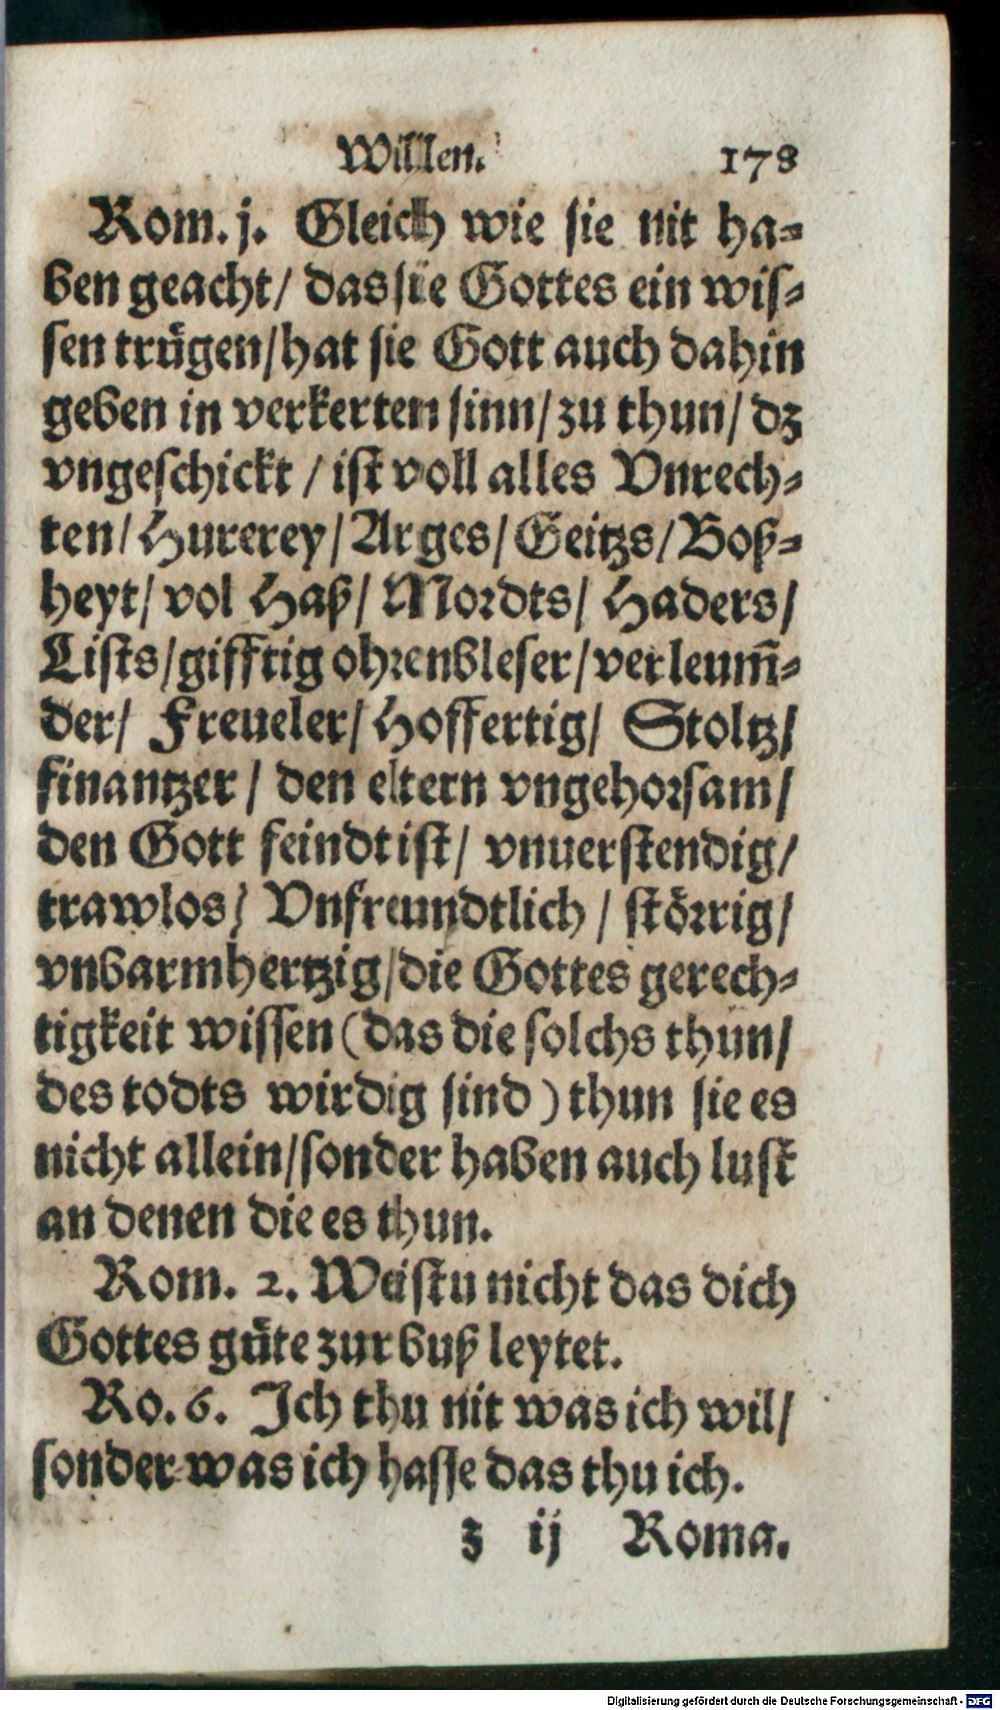 Willen. 178
Rom. j. Gleich wie sie nit ha⸗
ben geacht/ das sie Gottes ein wis⸗
sen trügen/hat sie Gott auch dahin
geben in verkerten sinn/zu thun/ dz
vngeschickt / ist voll alles Vnrech⸗
ten/ Hurerey/ Arges/ Geitzs/ Boß⸗
heyt/ vol Haß/ Mordts/ Haders/
Lists/gifftig ohrenbleser/verleum̃⸗
der/ Freueler/ Hoffertig/ Stoltz/
finantzer/ den eltern vngehorsam/
den Gott feindt ist/ vnuerstendig/
trawlos/ Vnfreundtlich / störrig/
vnbarmhertzig/die Gottes gerech⸗
tigkeit wissen (das die solchs thun/
des todts wirdig sind) thun sie es
nicht allein/sonder haben auch lust
an denen die es thun.
Rom. 2. Weistu nicht das dich
Gottes güte zur buß leytet.
Ro. 6. Ich thu nit was ich wil/
sonder was ich hasse das thu ich.
z ij Roma.
Digitalisierung gefördert durch die Deutsche Forschungsgemeinschaft - DFG